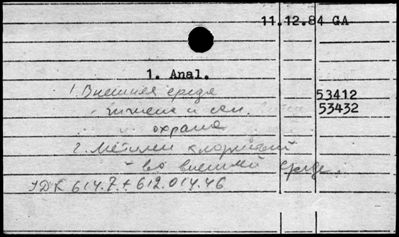 11.12.84 GA
1. Anal.
1. Внешняя среда 53412
- гигиена и сан. 53432
охрана
2. Метилен хлористый
- во внешней среде.
УДК 614.7 + 612.014.46